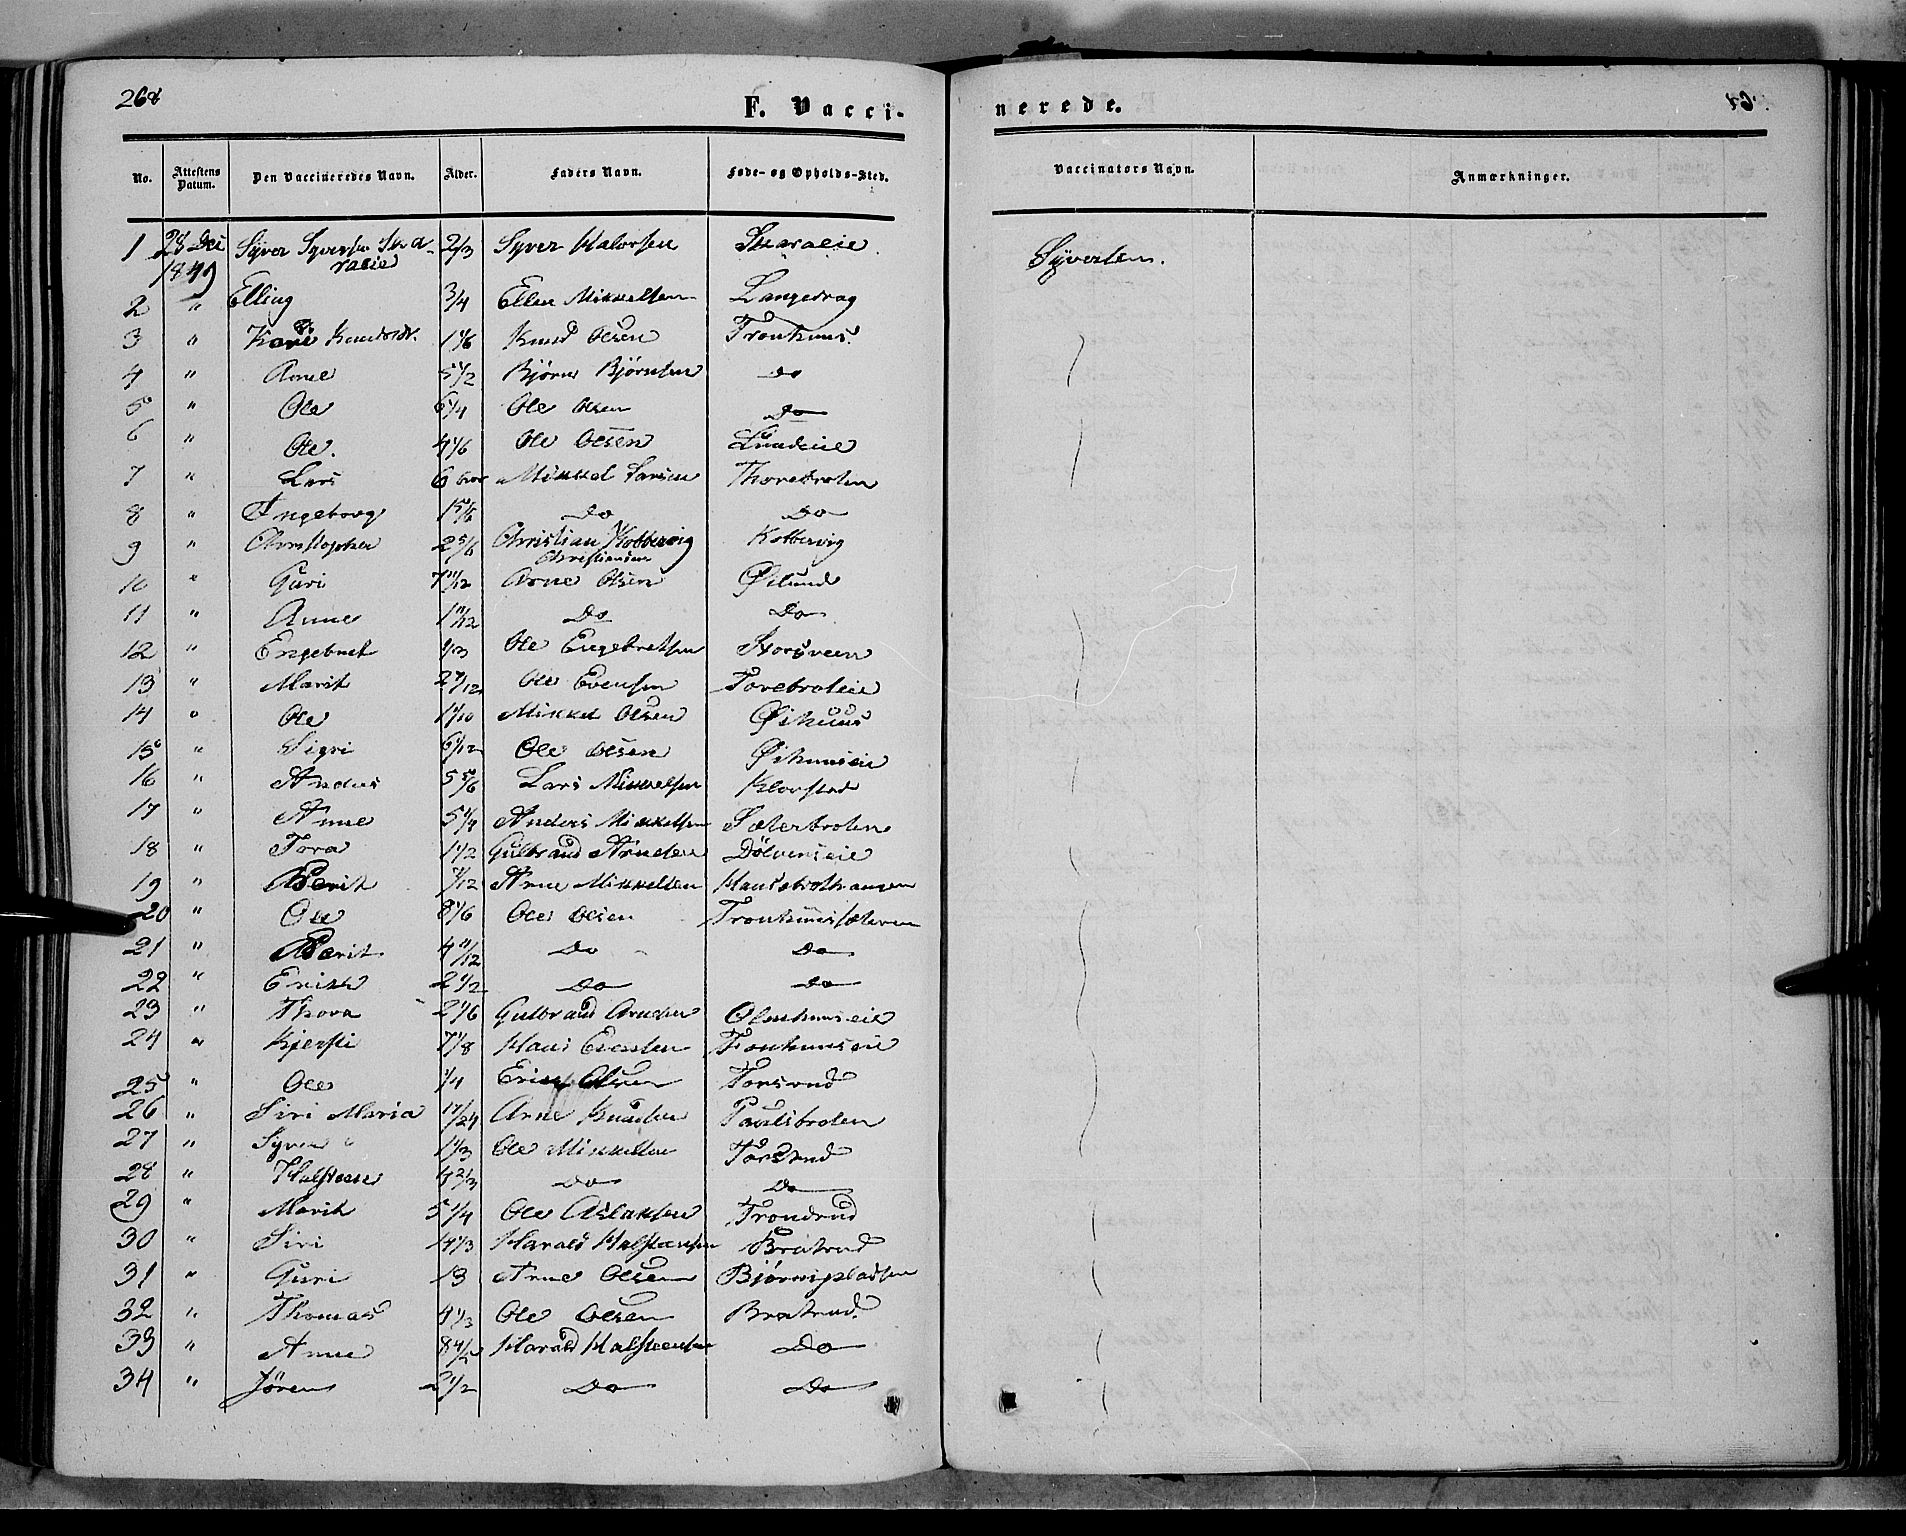 268
F. Vacci- nerede.
No. Attestens Datum. Den Vaccineredes Navn. Alder. Faders Navn. Føde- og Opholds-Sted. Vaccinators Navn. Anmærkninger.
1 28 Dec Syver Syversen 2/3 Syver Halvorsen Skaraeie Syversen.
1849
2 " Elling 3/4 Ellen Mikkelsen Langedrag
3 " Kari Knudsdr. 1 1/6 Knud Olsen Tronhuus
4 " Arne 5 1/2 Bjørn Bjørnsen Do
5 " Ole 6 1/4 Ole Olsen Do
6 " Ole. 4 1/6 Ole Olsen Lundeie
7 " Lars 6 Mikkel Larsen Thorebroten
8 " Ingeborg 1 5/6 Do Do
9 " Christopher 2 5/6 Christian Kobbervig Kobbervig
Christiansen
10 " Guri 7 11/12 Arne Olsen Øslund
11 " Anne 1 11/12 Do Do
12 " Engebret 1/3 Ole Engebretsen Storsveen
13 " Marit 2 7/12 Ole Evensen Torebroteie
14 " Ole 1 1/10 Mikkel Olsen Øihuus
15 " Sigri 6 1/12 Ole Olsen Øihuuseie
16 " Andres 5 5/6 Lars Mikkelsen Klovstad
17 " Anne 5 1/4 Anders Mikkelsen Sæterbroten
18 " Tora 1 1/2 Gulbrand Arnesen Dølvenseie
19 " Berit /12 Arne Mikkelsen
20 " Ole 8 1/6 Ole Olsen Tronhuussæteren
21 " Berit 4 11/12 Do Do
22 " Erik 2 1/2 Do Do
23 " Thora 2 1/6 Gulbrand Arnesen Olenhuuseie
24 " Kjersti 7 1/8 Hans Evensen Tronhuuseie
25 " Ole 1/4 Erik Olsen Torsrud
26 " Siri Maria 17/24 Arne Knudsen Paulsbroten
27 " Syver 1 1/3 Ole Mikkelsen Torsrud
28 " Halsteen 4 2/3 Do Do
29 " Marit 5 1/4 Ole Aslaksen Trondrud
30 " Siri 14 1/3 Harald Halstensen Bratrud
31 " Guri 13 Arne Olsen Bjørnipladsen
32 " Thomas 4 1/3 Ole Olsen Bratrud.
33 " Anne 8 1/2 Harald Halsteensen Do
34 " Jøren 2 1/2 Do Do